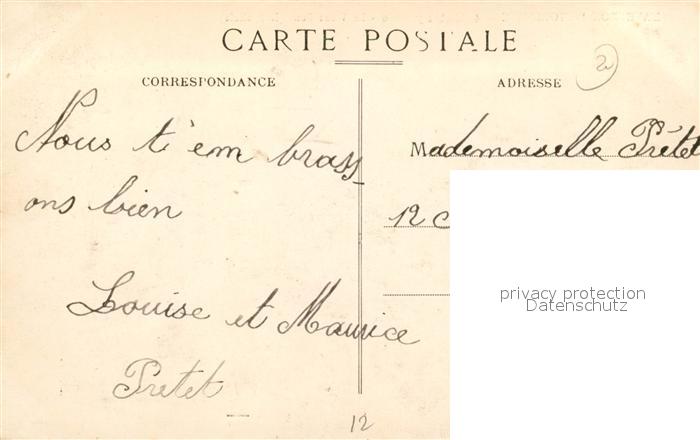 CARTE POSTALE
2
CORRESPONDANCE
ADRESSE
Nous t'em brass_
ons bien
Louise et Maurice
Pretet
12
Mademoiselle Prétet
12
privacy protection
Datenschutz